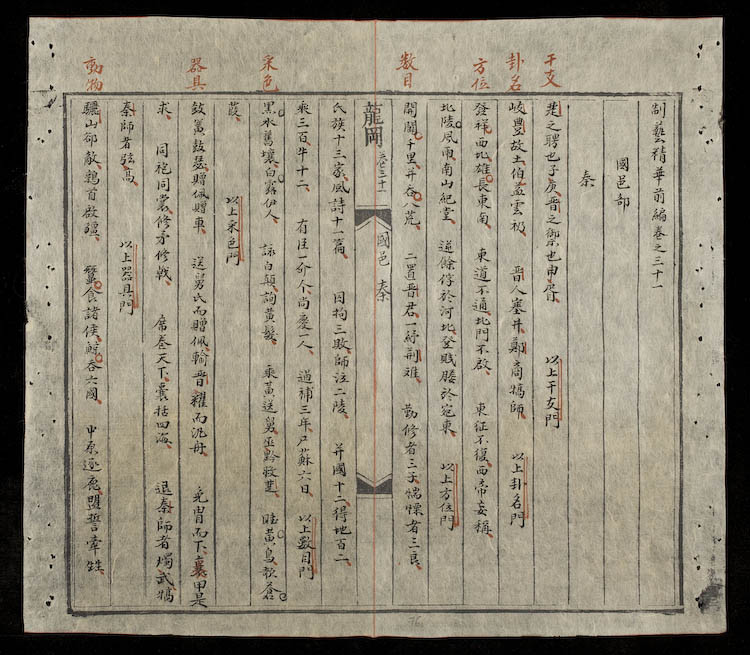 干支
卦名
方位
數目
采色
器具
動物
制藝精華前編卷之三十一
國邑部
秦
楚之聘也子庚晉之禦也申胥 以上干支門
岐豐故土伯益雲礽 晉人塞井鄭商犒師 以上卦名門
發祥西北雄長東南 東道不通北門不啟 東征不復西帝妄稱
北陵風雨南山紀堂 逆餘俘於河北登賤媵於宛東 以上方位門
開關千里并吞八荒 二置晉君一紓荊難 勤修者三子惴慄者三良
龍岡 卷三十一 國邑 秦
氏族十三家風詩十一篇 因拘三敗師泣二陵 并國十二得地百二
乘三百牛十二 有臣一介人尚慶一人 過補三年尸蘇六日 以上數目門
黑水舊壤白露伊人 詠白顛詢黃髮 乘黃送舅巫黔救 睦黃鳥歌蒼
葭 以上采色門
鼓簧鼓瑟贈佩贈車 送舅氏而贈佩輸晉糴而汎舟 免冑而下裹甲是
求 同袍同裳修矛修戟 席卷天下囊括四海 退秦師者燭武犒
秦師者弦高 以上器具門
驪山邻敵鶉首啟疆 蠶食諸侯鯨吞六國 中原逐鹿盟誓牽牲